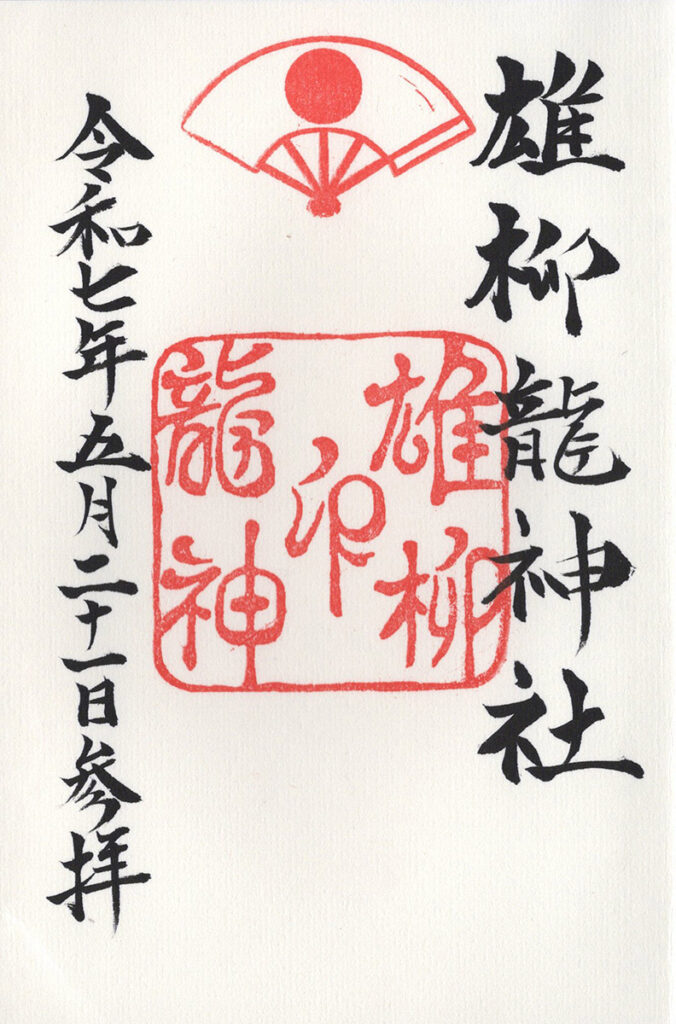 雄柳龍神社
雄柳
印
龍神
令和七年五月二十一日参拝